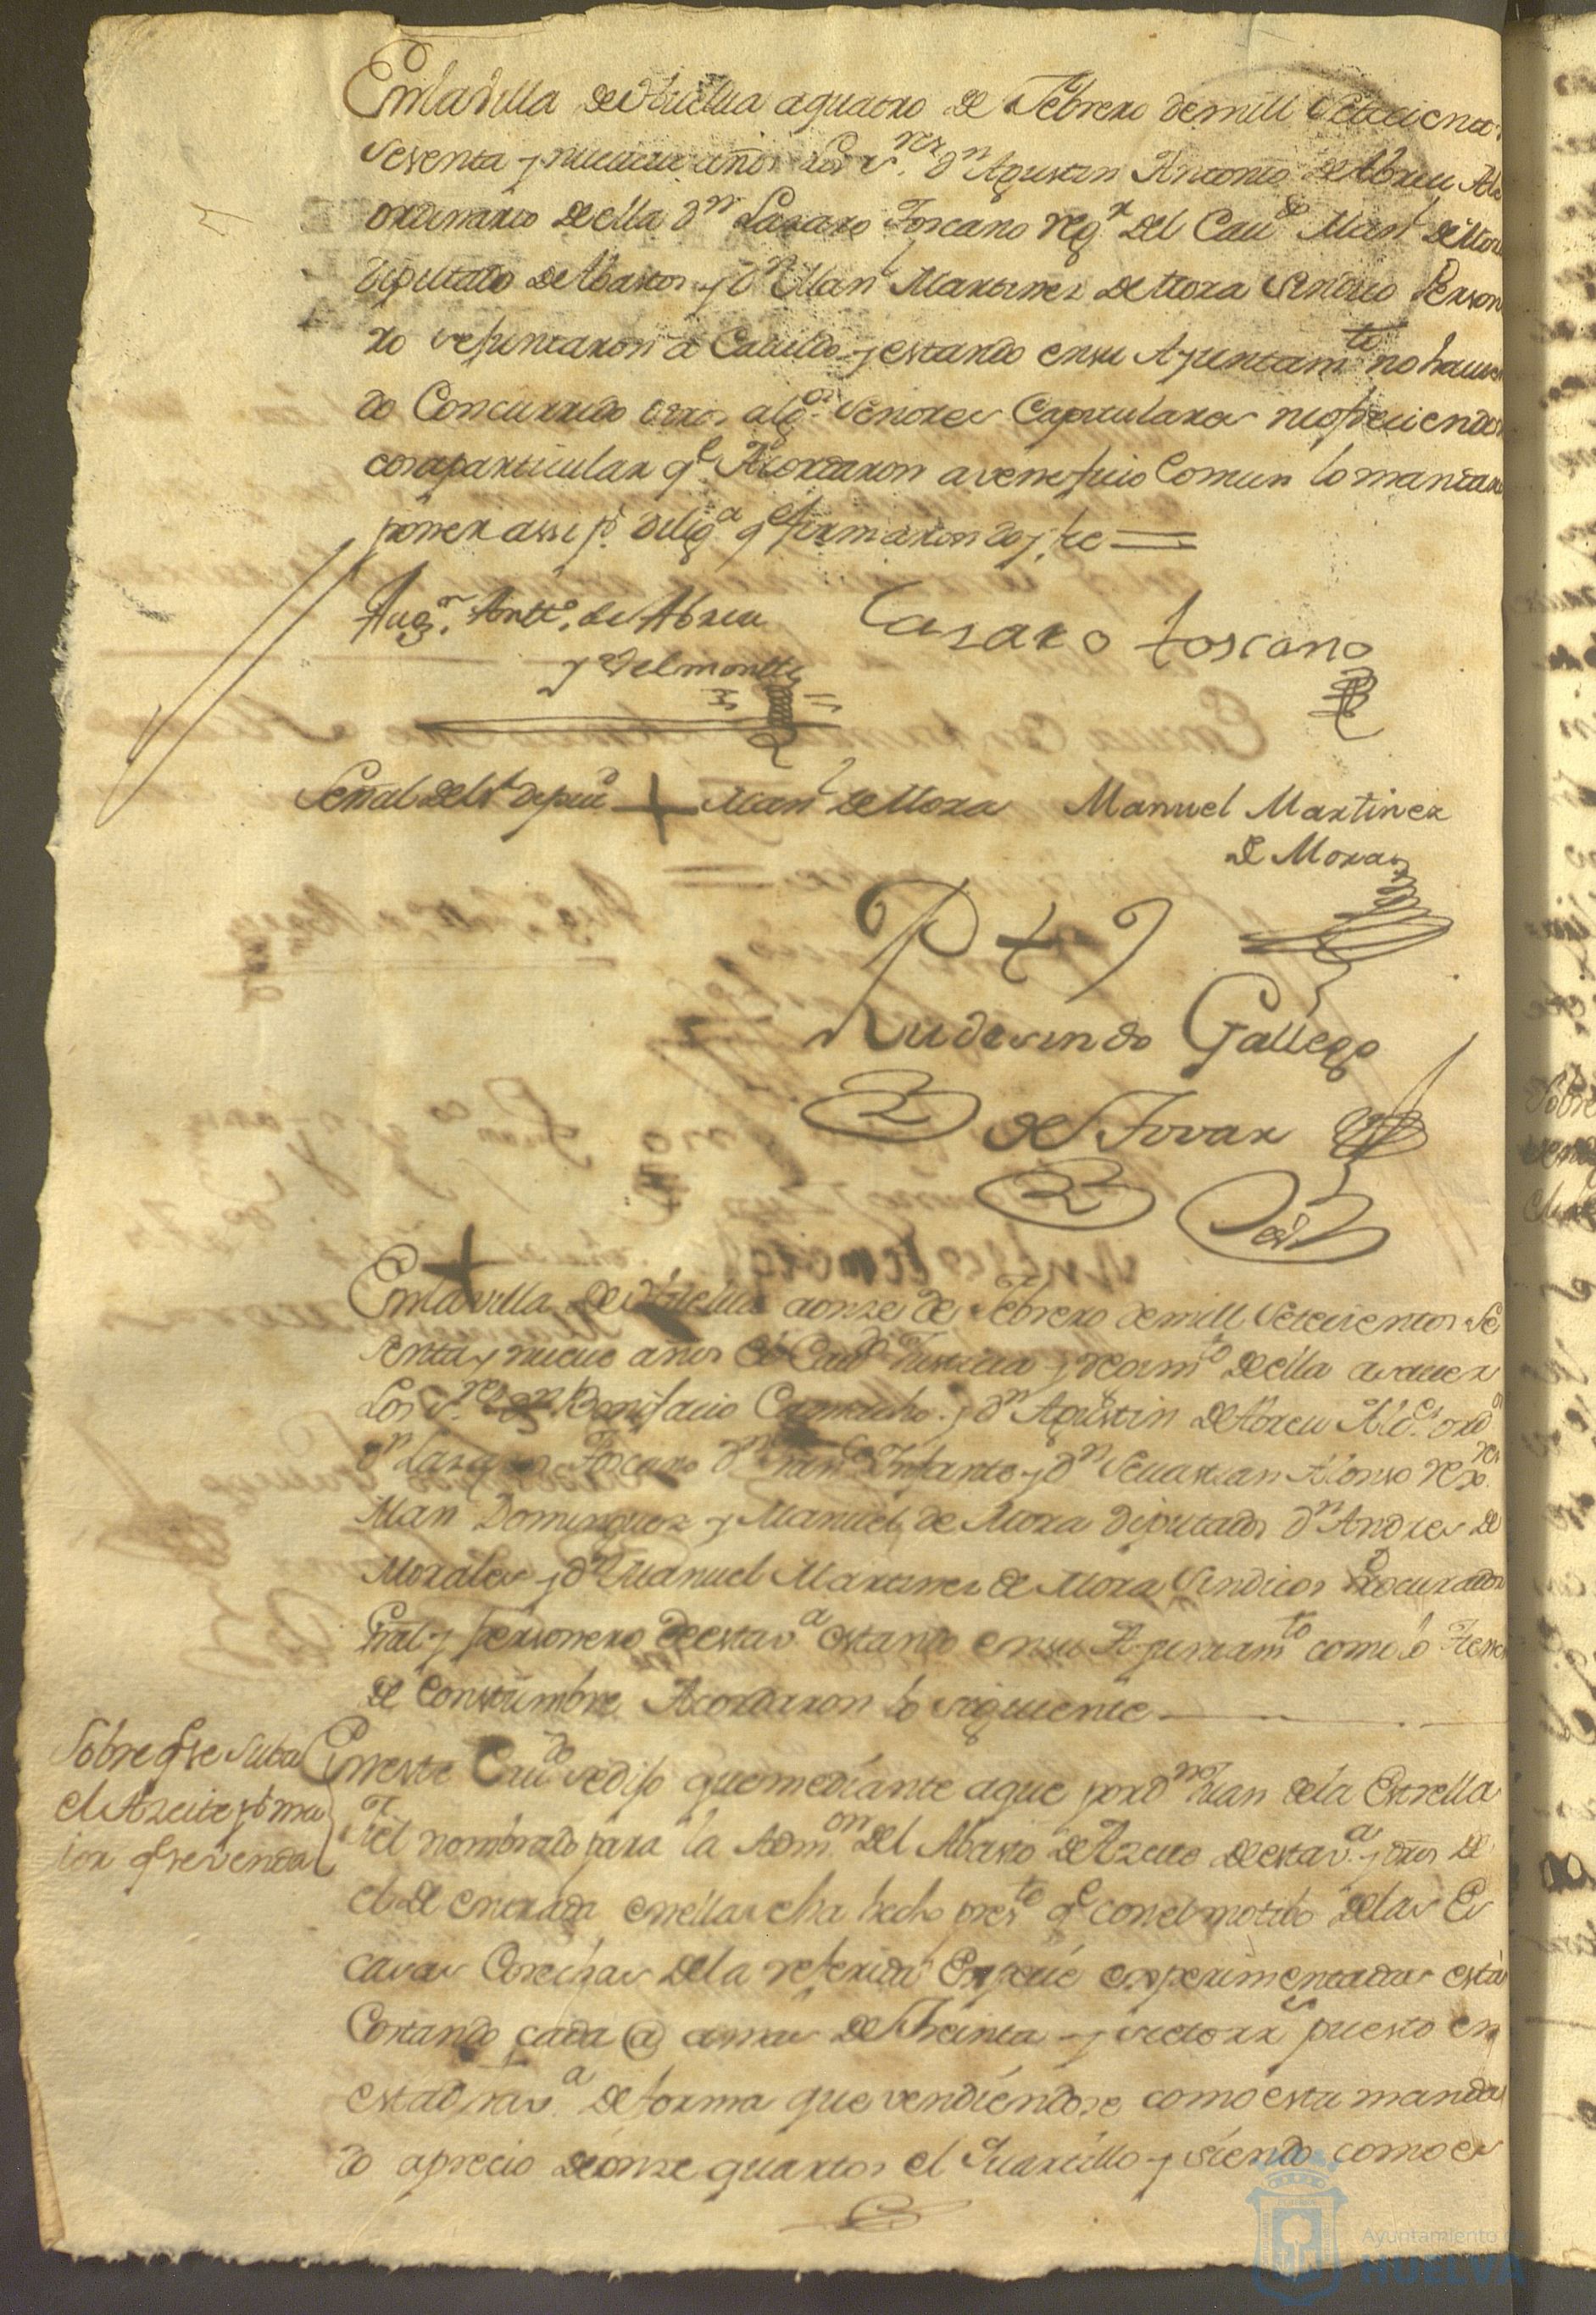 En la Villa de Huelua a quatro de Febrero de mill Setecientos
Sesenta y nueue años los S.res Dn Agustin Antonio de Abreu Alc
ordinario de ella Dn Lazaro Toscano reg.r del Cau.do Man.l de Mora
Diputado de Abastos y Dn Man.l Martinez de Mora Sindico Person
ro se juntaron a Cauildo y estando en su Ayuntam.to no hauien
do Concurrido otros alg.os Señores Capitulares no ofreciendo
cosa particular q.e Acordaron a veneficio Comun lo mandaron
poner assi p.r dilig.a q.e firmaron doy fee =
Aug.n Antt.o de Abreu
y Delmontte
Lasaro toscano
Señal del S.r diput.do + Man.l de Mora
Manuel Martinez
de Mora
Rudesindo Gallego
de Tovar
En la villa de Huelua a onse de Febrero de mill Setecientos Se
senta y nueue años el Cau.do Justicia y rexim.to de ella a sauer
Los S.res Dn Bonifacio Camacho y Dn Agustin de Abreu Alc.es ord.os
Dn Lazaro Toscano Dn Juan Infante y Dn Seuastian Alonso rex.res
Man.l Dominguez y Manuel de Mora Diputados Dn Andres de
Morales y Dn Manuel Martinez de Mora Sindicos Procurador
Gral y personero de esta v.a estando en su Ayuntam.to como lo tiene
de Constumbre Acordaron lo siguiente
Sobre q.e se suba
el Azeite p.r ma
ior q.e se venda
En este Cau.do se dijo que mediante a que por Dn Juan de la Estrella
Fiel nombrado para la Adm.on del Abasto de Azeite de esta v.a y dros de
el de entrada en ella se ha hecho pres.te q.e con el motibo de las Es
casas Cosechas de la referida Especie experimentadas està
Costando cada @ a mas de Treinta y siete rr.s puesto en
esta dha v.a de forma que vendiendose como esta manda
do a precio de onse quartos el Quartillo y siendo como es
Ayuntamiento de
HUELVA